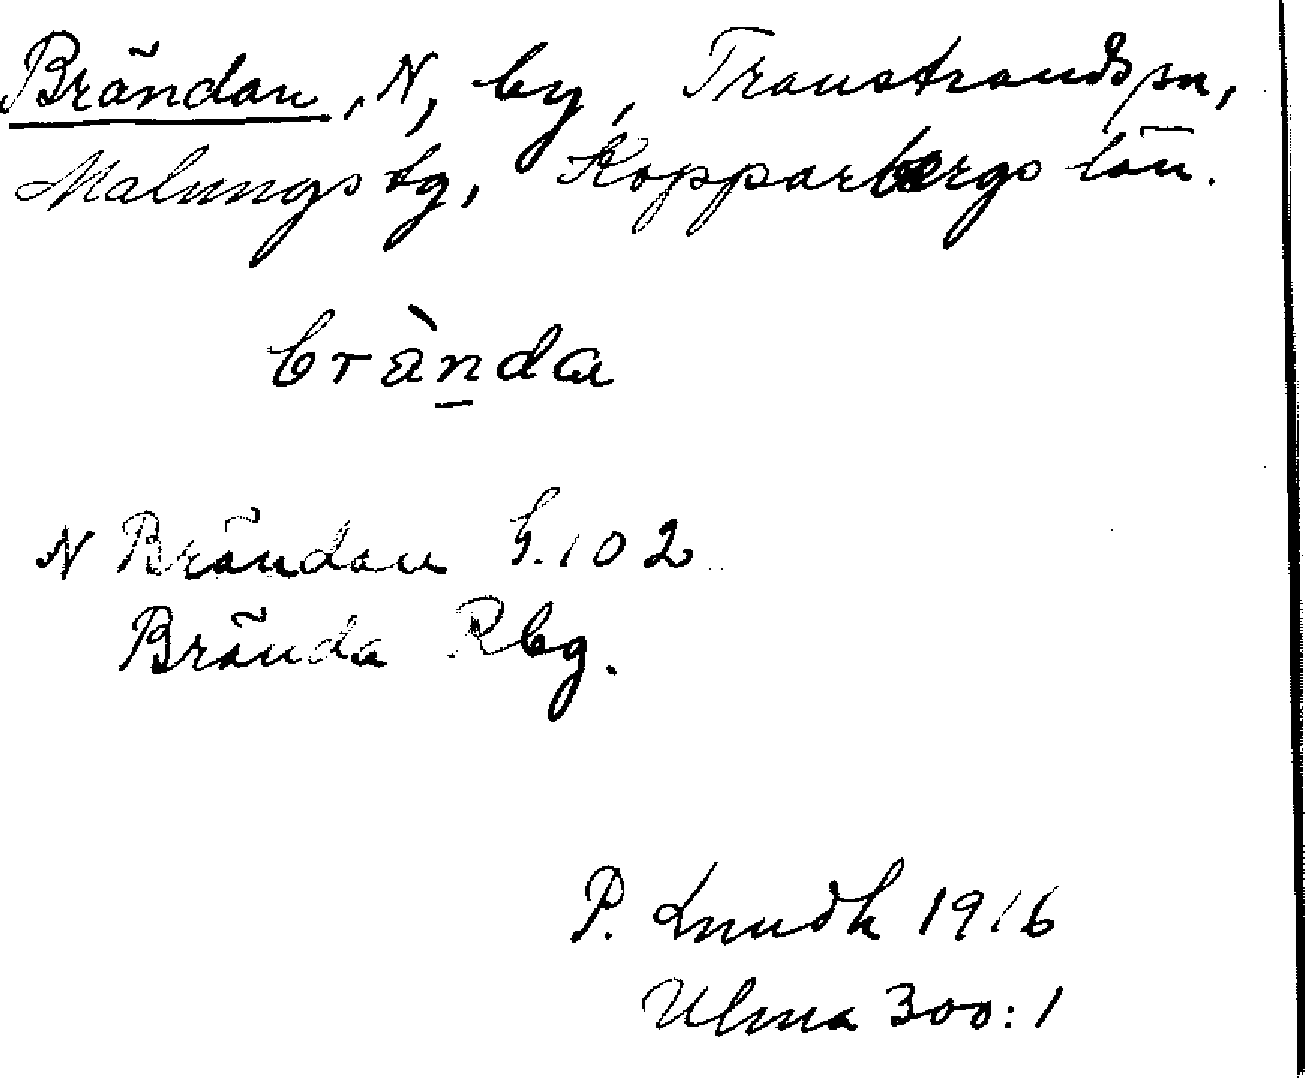 Brändan, N, by, Transtrands sn,
Malungs tg, Kopparbergs län.
brànda
N Brändan G. 102
Brända Rbg.
P. Lmudk 1916
Ulma 300:1